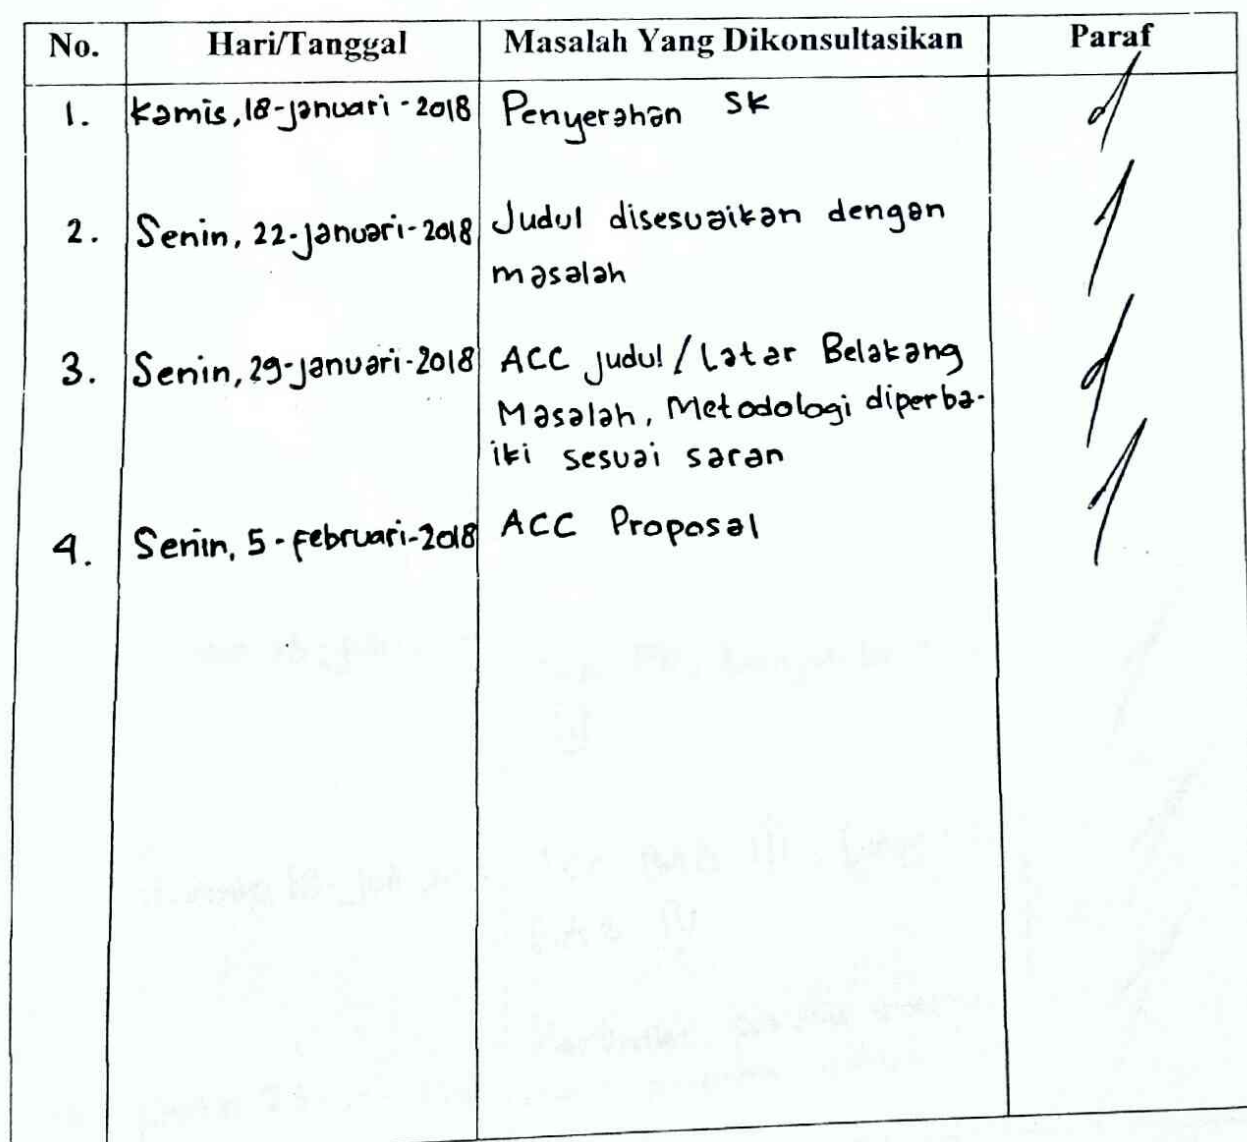 No. Hari/Tanggal Masalah Yang Dikonsultasikan Paraf
1. Kamis, 18-Januari-2018 Penyerahan SK
2. Senin, 22-Januari-2018 Judul disesuaikan dengan
masalah
3. Senin, 29-Januari-2018 ACC Judul / Latar Belakang
Masalah, Metodologi diperba-
iki sesuai saran
4. Senin, 5-Februari-2018 ACC Proposal